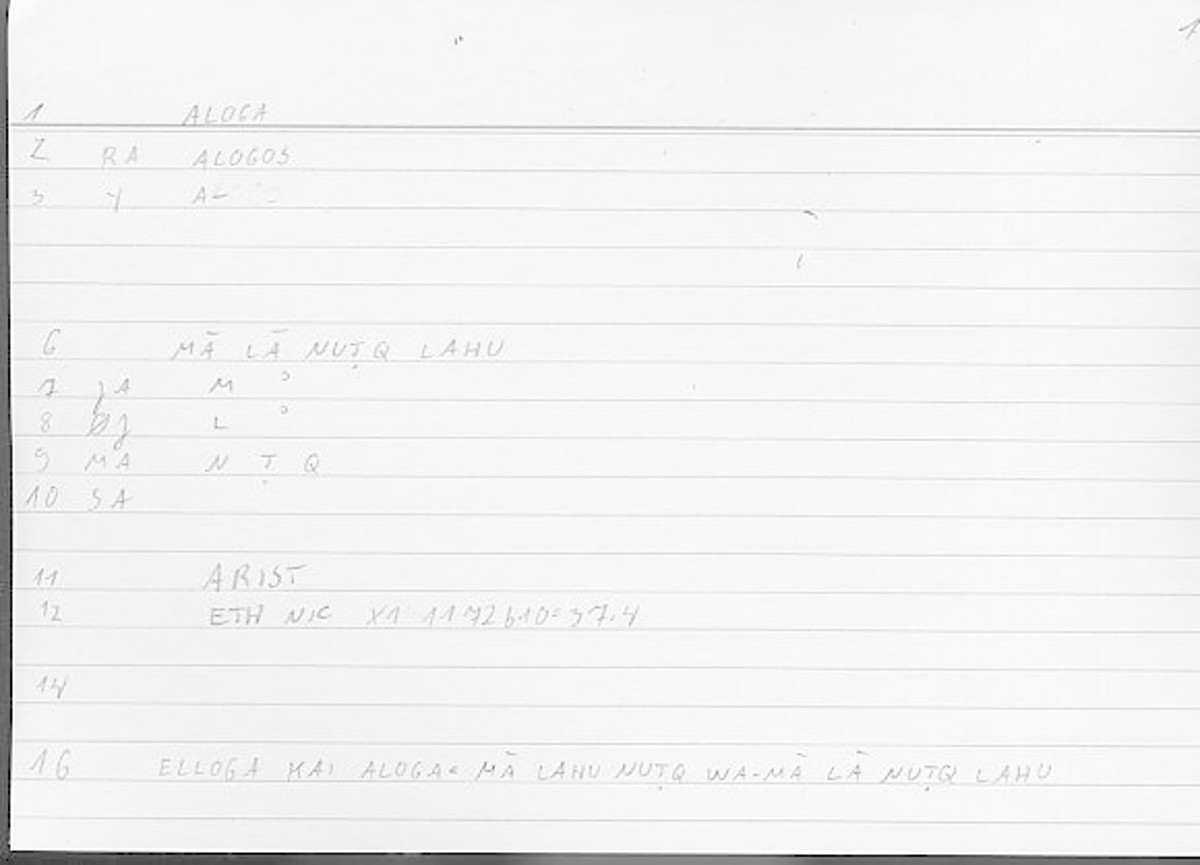 1
1 ALOGA
2 RA ALOGOS
3 Y A-
6 MĀ LĀ NUṬQ LAHU
7 JA M ʾ
8 L ʾ
9 MA N Ṭ Q
10 SA
11 ARIST
12 ETH NIC X1 1172b10: 37.4
14
16 ELLOGA KAI ALOGA: MĀ LAHU NUṬQ WA-MĀ LĀ NUṬQ LAHU